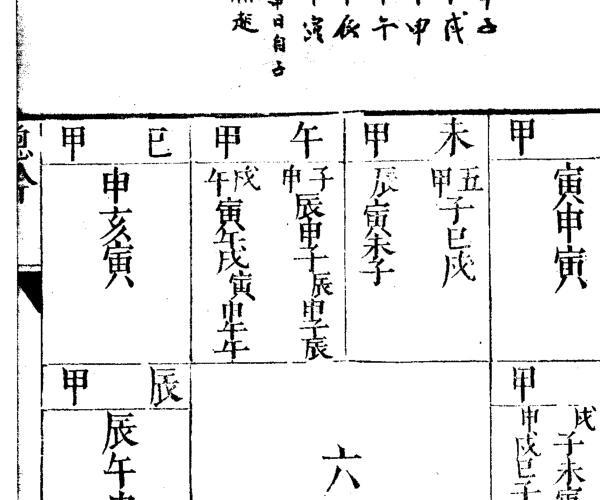 子
戌
申
午
辰
寅
日自子
起
甲
寅申寅
未甲
丑子巳戌
甲
辰寅未子
午甲
子申辰申子辰申子辰
戌午寅午戌寅申午午
巳甲
申亥寅
甲
戌子未寅
申戌巳子
六
辰甲
辰午